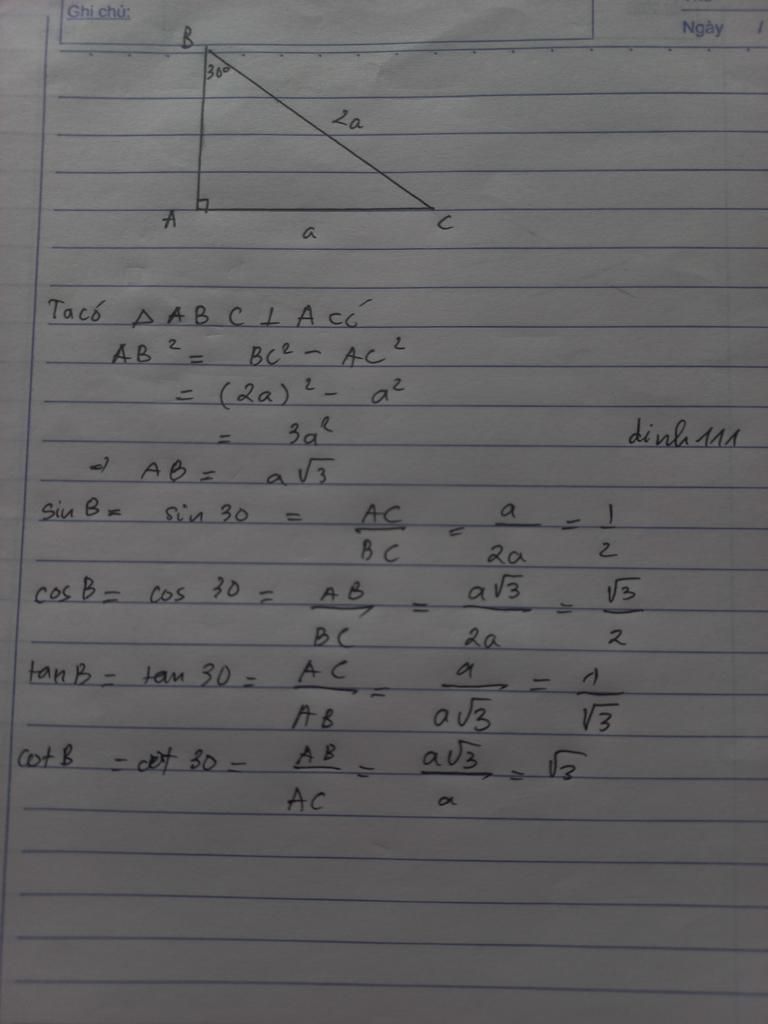 Ghi chú:
Ngày /
B
30°
2a
A
C
a
Ta có Δ ABC ⊥ A có
AB² = BC² - AC²
= (2a)² - a²
= 3a²
dinh111
=> AB = a√3
sin B = sin 30 = AC/BC = a/2a = 1/2
cos B = cos 30 = AB/BC = a√3/2a = √3/2
tan B = tan 30 = AC/AB = a/a√3 = 1/√3
cot B = cot 30 = AB/AC = a√3/a = √3